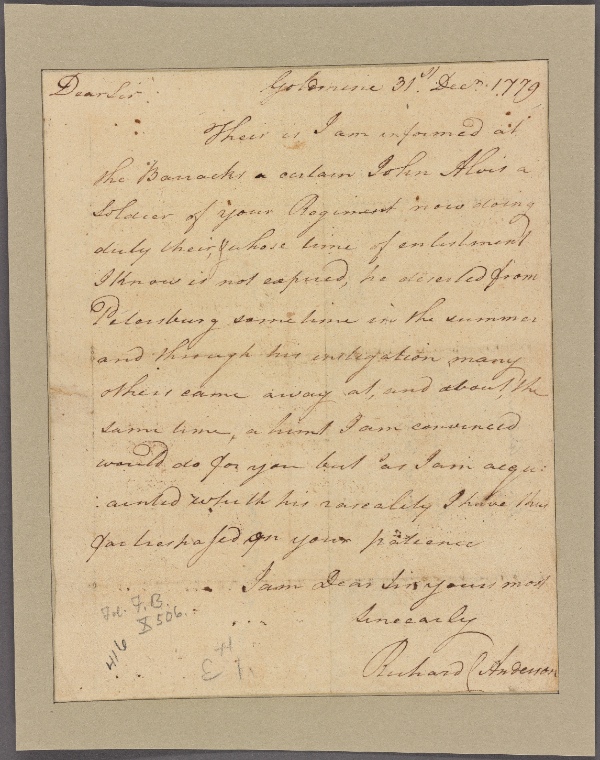 Dear Sir. Goldmine 31st Decr. 1779
Their is I am informed at
the Barracks a certain John Alvis a
Soldier of your Regiment now doing
duty their, whose time of enlistment
I Know is not expired, he deserted from
Petersburg sometime in the summer
and through his instigation many
others came away at, and about, the
same time, a hint I am convinced
would do for you but as I am acqu:
:ainted with his rascality I have thus
far trespassed on your patience
I am Dear Sir yours most
sincearly
Richard C Anderson
F. B.
X 506.
416